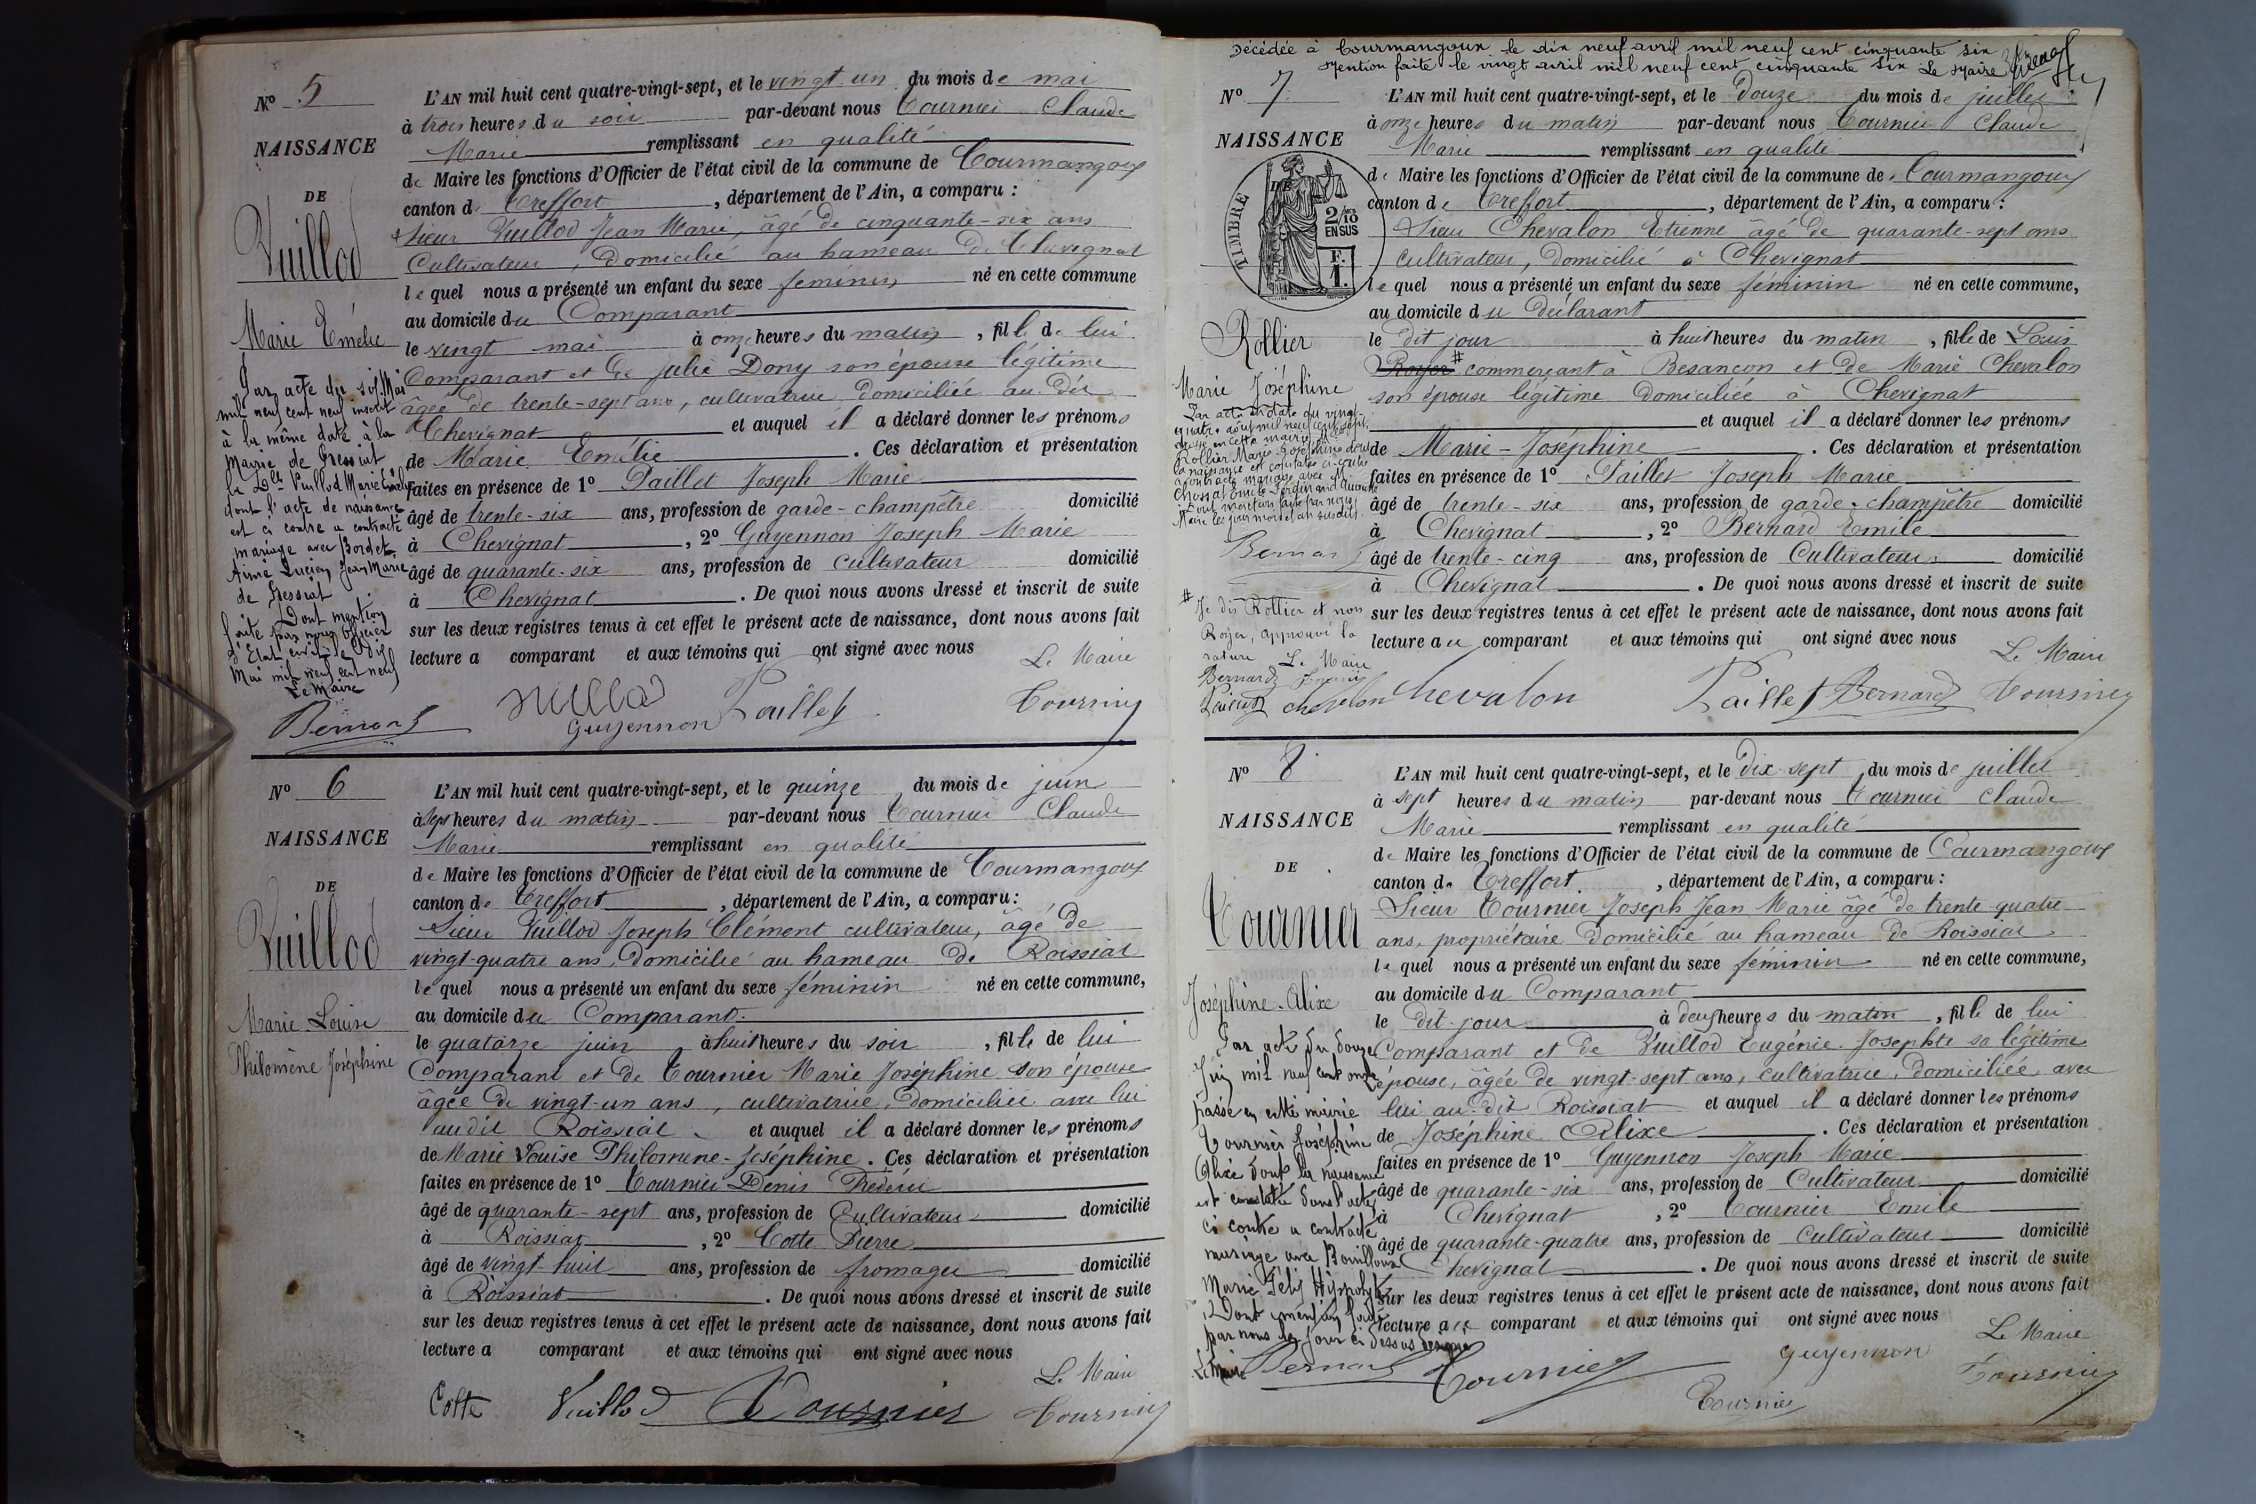 N° 5
NAISSANCE
DE
Vuillod
Marie Emélie
Par acte du six Mai
mil neuf cent neuf inscrit
à la même date à la
Mairie de Pressiat
la Dlle Vuillod Marie Emélie
dont l'acte de naissance
est ci contre a contracté
mariage avec Bordet
Aimé Lucien Jean Marie
de Pressiat
Dont mention
faite par nous officier
d'Etat civil le dix
Mai mil neuf cent neuf
Le Maire
Bernard
L'AN mil huit cent quatre-vingt-sept, et le vingt un du mois de mai
à trois heures du soir par-devant nous Tournier Claude
Marie remplissant en qualité
de Maire les fonctions d'Officier de l'état civil de la commune de Courmangoux
canton de Treffort, département de l'Ain, a comparu :
Sieur Vuillod Jean Marie, âgé de cinquante-six ans
Cultivateur, domicilié au hameau de Chevignat
lequel nous a présenté un enfant du sexe féminin né en cette commune
au domicile du Comparant
le vingt mai à onze heures du matin, fille de lui
Comparant et de Julie Dony son épouse légitime
âgée de trente-sept ans, cultivatrice, domiciliée au dit
Chevignat et auquel il a déclaré donner les prénoms
de Marie Emélie. Ces déclaration et présentation
faites en présence de 1° Paillet Joseph Marie
âgé de trente-six ans, profession de garde-champêtre domicilié
à Chevignat, 2° Guyennon Joseph Marie
âgé de quarante-six ans, profession de cultivateur domicilié
à Chevignat. De quoi nous avons dressé et inscrit de suite
sur les deux registres tenus à cet effet le présent acte de naissance, dont nous avons fait
lecture a comparant et aux témoins qui ont signé avec nous
Le Maire
Vuillod Paillet Tournier
Guyennon
N° 6
NAISSANCE
DE
Vuillod
Marie Louise
Philomène Joséphine
L'AN mil huit cent quatre-vingt-sept, et le quinze du mois de juin
à sept heures du matin par-devant nous Tournier Claude
Marie remplissant en qualité
de Maire les fonctions d'Officier de l'état civil de la commune de Courmangoux
canton de Treffort, département de l'Ain, a comparu :
Sieur Vuillod Joseph Clément cultivateur, âgé de
vingt-quatre ans, domicilié au hameau de Roissiat
lequel nous a présenté un enfant du sexe féminin né en cette commune,
au domicile du Comparant.
le quatorze juin à huit heures du soir, fille de lui
Comparant et de Tournier Marie Joséphine son épouse
âgée de vingt-un ans, cultivatrice, domiciliée avec lui
audit Roissiat et auquel il a déclaré donner les prénoms
de Marie Louise Philomène-Joséphine. Ces déclaration et présentation
faites en présence de 1° Tournier Denis Frédéric
âgé de quarante-sept ans, profession de Cultivateur domicilié
à Roissiat, 2° Cotte Pierre
âgé de vingt huit ans, profession de fromager domicilié
à Roissiat. De quoi nous avons dressé et inscrit de suite
sur les deux registres tenus à cet effet le présent acte de naissance, dont nous avons fait
lecture a comparant et aux témoins qui ont signé avec nous
Le Maire
Cotte Vuillod Tournier Tournier
Décédée à Courmangoux le dix neuf avril mil neuf cent cinquante six
Mention faite le vingt avril mil neuf cent cinquante six Le Maire
N° 7
NAISSANCE
DE
TIMBRE
2/10 EN SUS
F. 1.
Rollier
Marie Joséphine
Par acte en date du vingt-
quatre août mil neuf cent sept,
dressé en cette mairie, Melle
Rollier Marie-Joséphine dont
la naissance est constatée ci-contre
a contracté mariage avec M
Chossat Emile Ferdinand
Dont mention faite par nous
Maire les jour mois et an susdits
Bernard
# Je dis Rollier et non
Royer, approuvé la
rature Le Maire
Bernard Tournier
Paillet Chevalon
L'AN mil huit cent quatre-vingt-sept, et le douze du mois de juillet
à onze heures du matin par-devant nous Tournier Claude
Marie remplissant en qualité
de Maire les fonctions d'Officier de l'état civil de la commune de Courmangoux
canton de Treffort, département de l'Ain, a comparu :
Sieur Chevalon Etienne âgé de quarante-sept ans
cultivateur, domicilié à Chevignat
lequel nous a présenté un enfant du sexe féminin né en cette commune,
au domicile du déclarant
le dit jour à huit heures du matin, fille de Louis
Royer # commerçant à Besançon et de Marie Chevalon
son épouse légitime domiciliée à Chevignat
et auquel il a déclaré donner les prénoms
de Marie-Joséphine. Ces déclaration et présentation
faites en présence de 1° Paillet Joseph Marie
âgé de trente-six ans, profession de garde-champêtre domicilié
à Chevignat, 2° Bernard Emile
âgé de trente-cinq ans, profession de Cultivateur domicilié
à Chevignat. De quoi nous avons dressé et inscrit de suite
sur les deux registres tenus à cet effet le présent acte de naissance, dont nous avons fait
lecture au comparant et aux témoins qui ont signé avec nous
Le Maire
Chevalon Paillet Bernard Tournier
N° 8
NAISSANCE
DE
Tournier
Joséphine-Alixe
Par acte du douze
Juin mil neuf cent onze
passé en cette mairie
Tournier Joséphine
Alixe dont la naissance
est constatée dans l'acte
ci contre a contracté
mariage avec Bouilloux
Marie Félix Hippolyte
Dont mention faite
par nous les jour ci dessus désignés
Le Maire Bernard
L'AN mil huit cent quatre-vingt-sept, et le dix-sept du mois de juillet
à sept heures du matin par-devant nous Tournier Claude
Marie remplissant en qualité
de Maire les fonctions d'Officier de l'état civil de la commune de Courmangoux
canton de Treffort, département de l'Ain, a comparu :
Sieur Tournier Joseph Jean Marie âgé de trente-quatre
ans, propriétaire domicilié au hameau de Roissiat
lequel nous a présenté un enfant du sexe féminin né en cette commune,
au domicile du Comparant
le dit-jour à deux heures du matin, fille de lui
Comparant et de Vuillod Eugénie-Josephte sa légitime
épouse, âgée de vingt-sept ans, cultivatrice, domiciliée avec
lui au-dit Roissiat et auquel il a déclaré donner les prénoms
de Joséphine Alixe. Ces déclaration et présentation
faites en présence de 1° Guyennon Joseph Marie
âgé de quarante-six ans, profession de Cultivateur domicilié
à Chevignat, 2° Tournier Emile
âgé de quarante-quatre ans, profession de cultivateur domicilié
Chevignat. De quoi nous avons dressé et inscrit de suite
sur les deux registres tenus à cet effet le présent acte de naissance, dont nous avons fait
lecture au comparant et aux témoins qui ont signé avec nous
Le Maire
Tournier Guyennon Tournier
Tournier